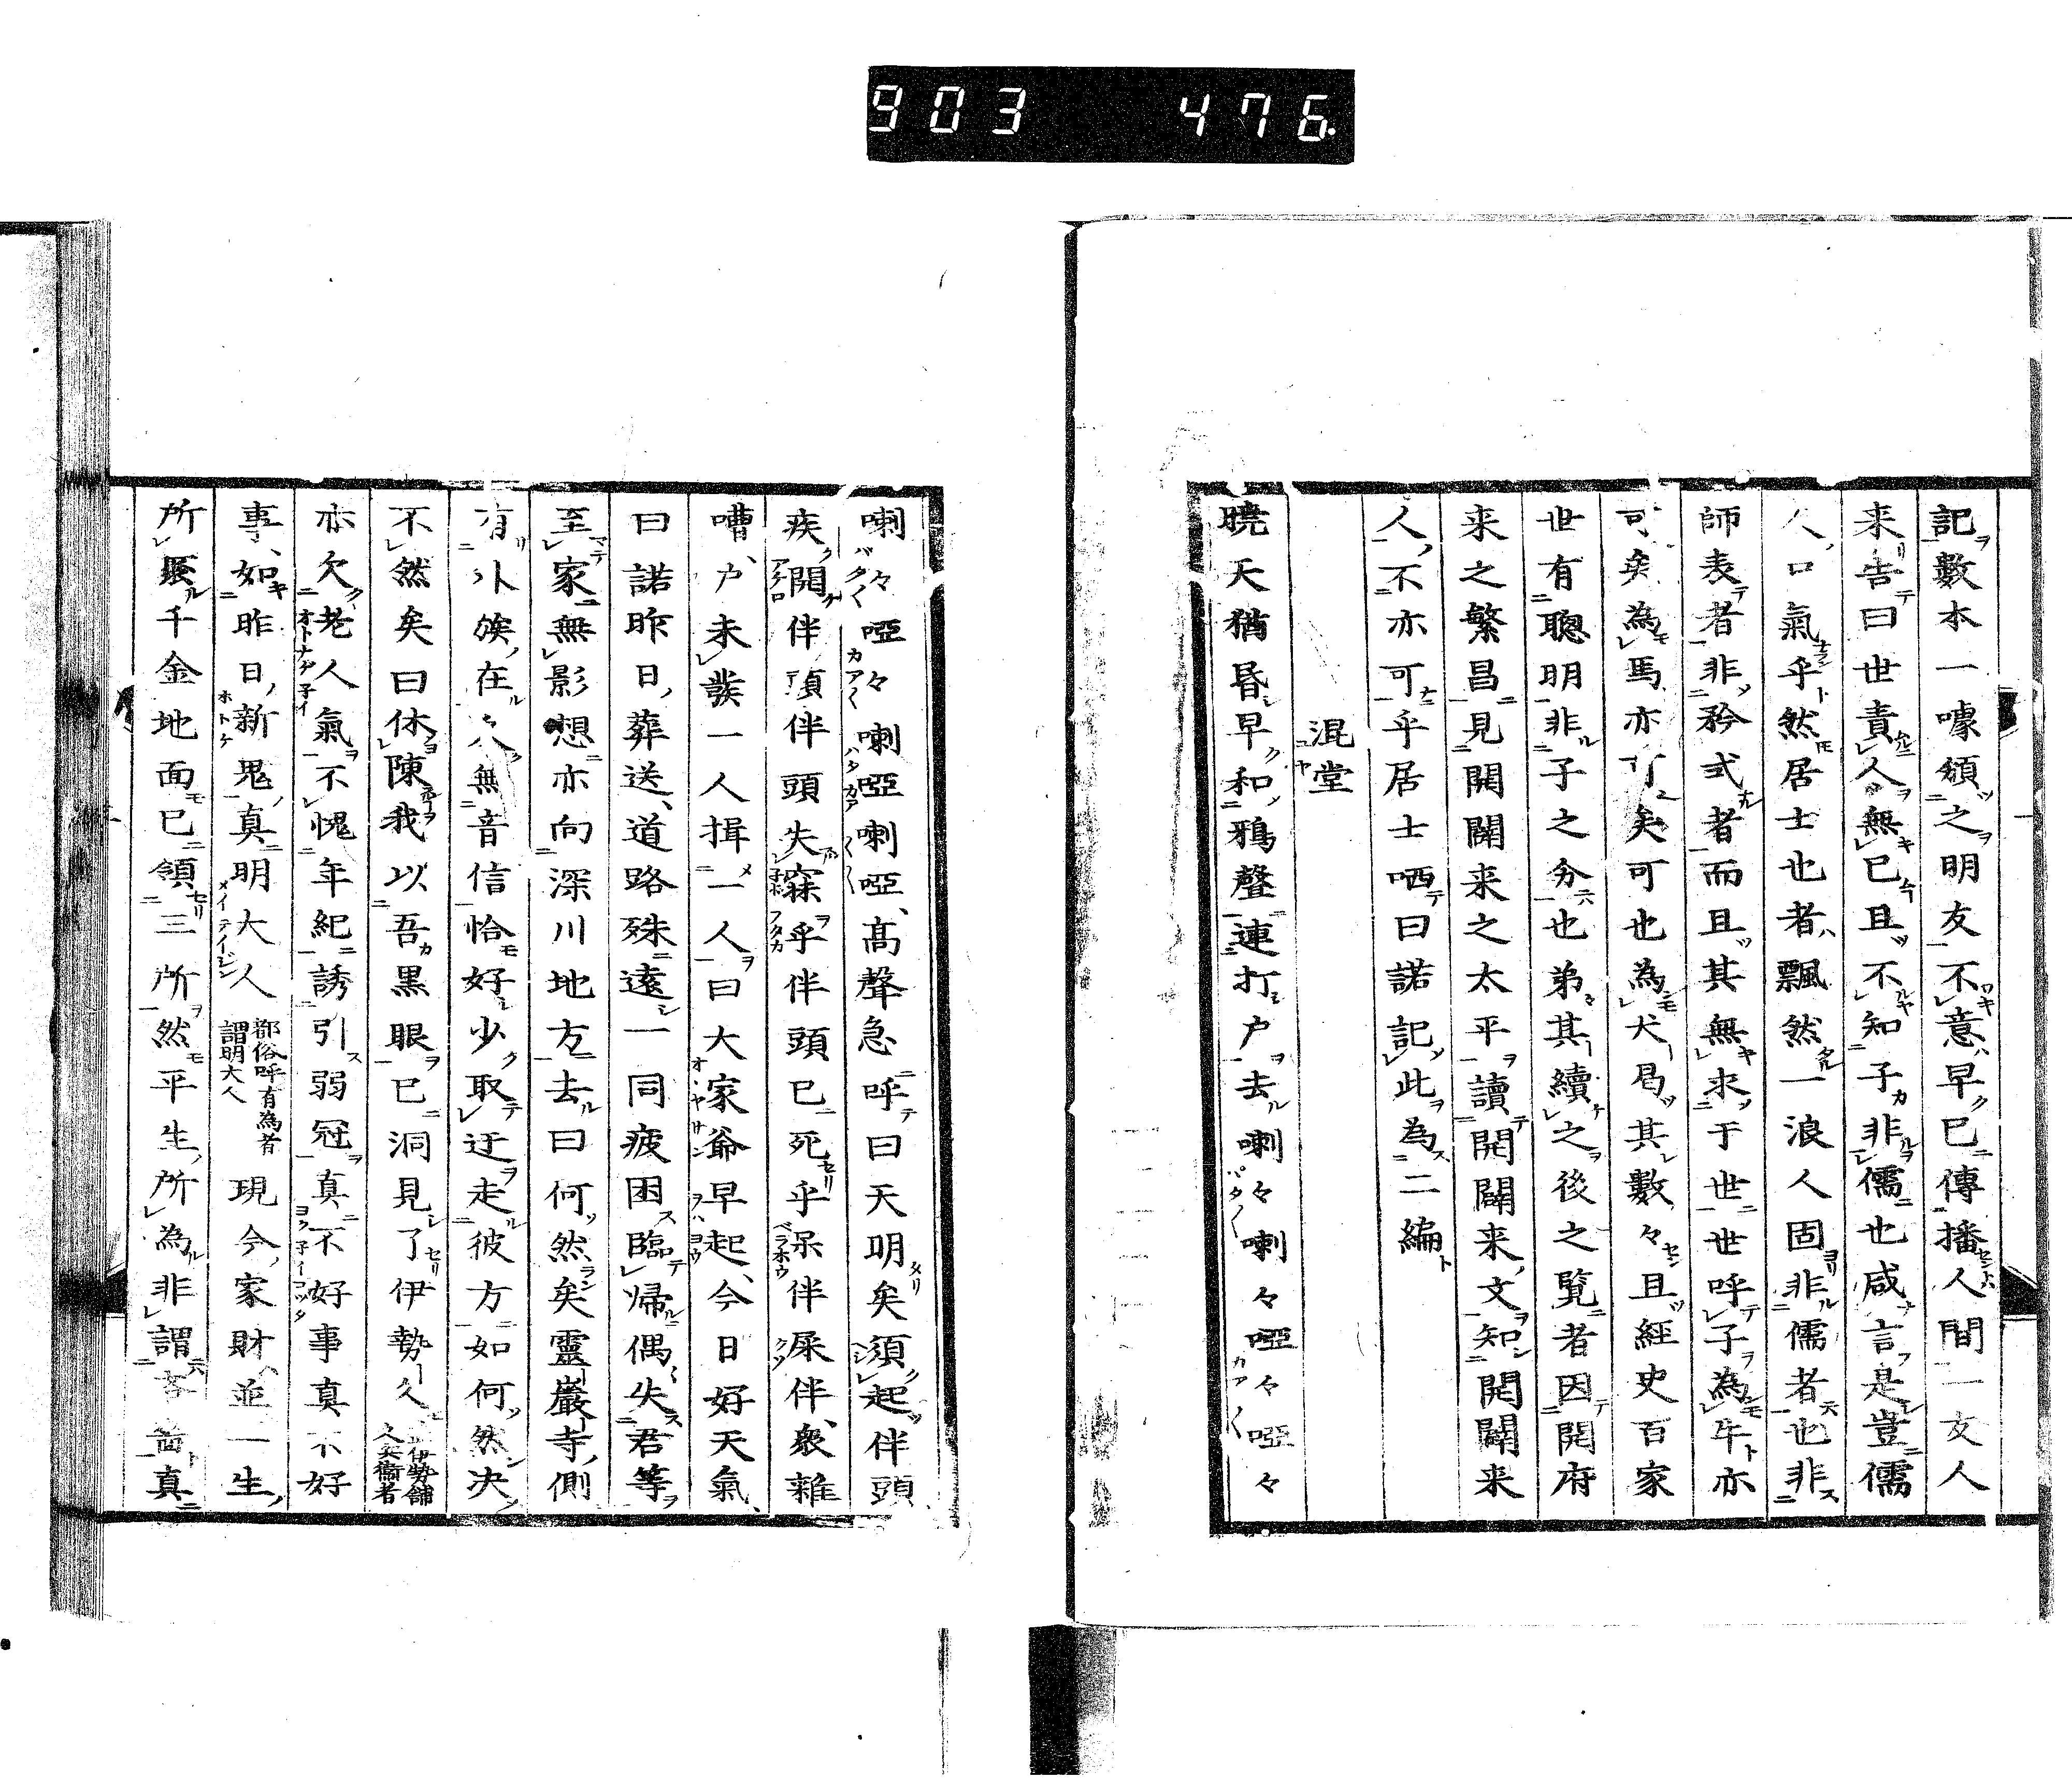 903 476
記數本一嚎頒之明友不意早已傳播人間一友人
来告曰世責人無已且不知子非儒也咸言是豈儒
人口氣乎然居士也者飄然一浪人固非儒者也非
師表者非矜式者而且其無求于世世呼子為牛亦
可矣為馬亦可矣可也為犬曷其數々且經史百家
世有聰明非子之分也弟其續之後之覽者因開府
来之繁昌見開闢来之太平讀開闢来文知開闢来
人不亦可乎居士哂曰諾記此為二編
混堂
曉天猶昏早和鴉聲連打户去喇々喇々啞々啞々
喇々啞々喇啞喇啞高聲急呼曰天明矣須起伴頭
疾開伴頭伴頭失寐乎伴頭已死乎呆伴屎伴衆雜
嘈户未發一人揖一人曰大家爺早起今日好天氣
曰諾昨日葬送道路殊遠一同疲困臨歸偶失君等
至家無影想亦向深川地方去曰何然矣靈巖寺側
有外族在久無音信恰好少取迂走彼方如何然决
不然矣曰休陳我以吾黒眼已洞見了伊勢久 伊勢舗久兵衞者
亦欠老人氣不愧年紀誘引弱冠真不好事真不好
事如昨日新鬼真明大人 都俗呼有為者謂明大人 現今家財並一生
所賑千金地面已領三所然平生所為非謂吝嗇真